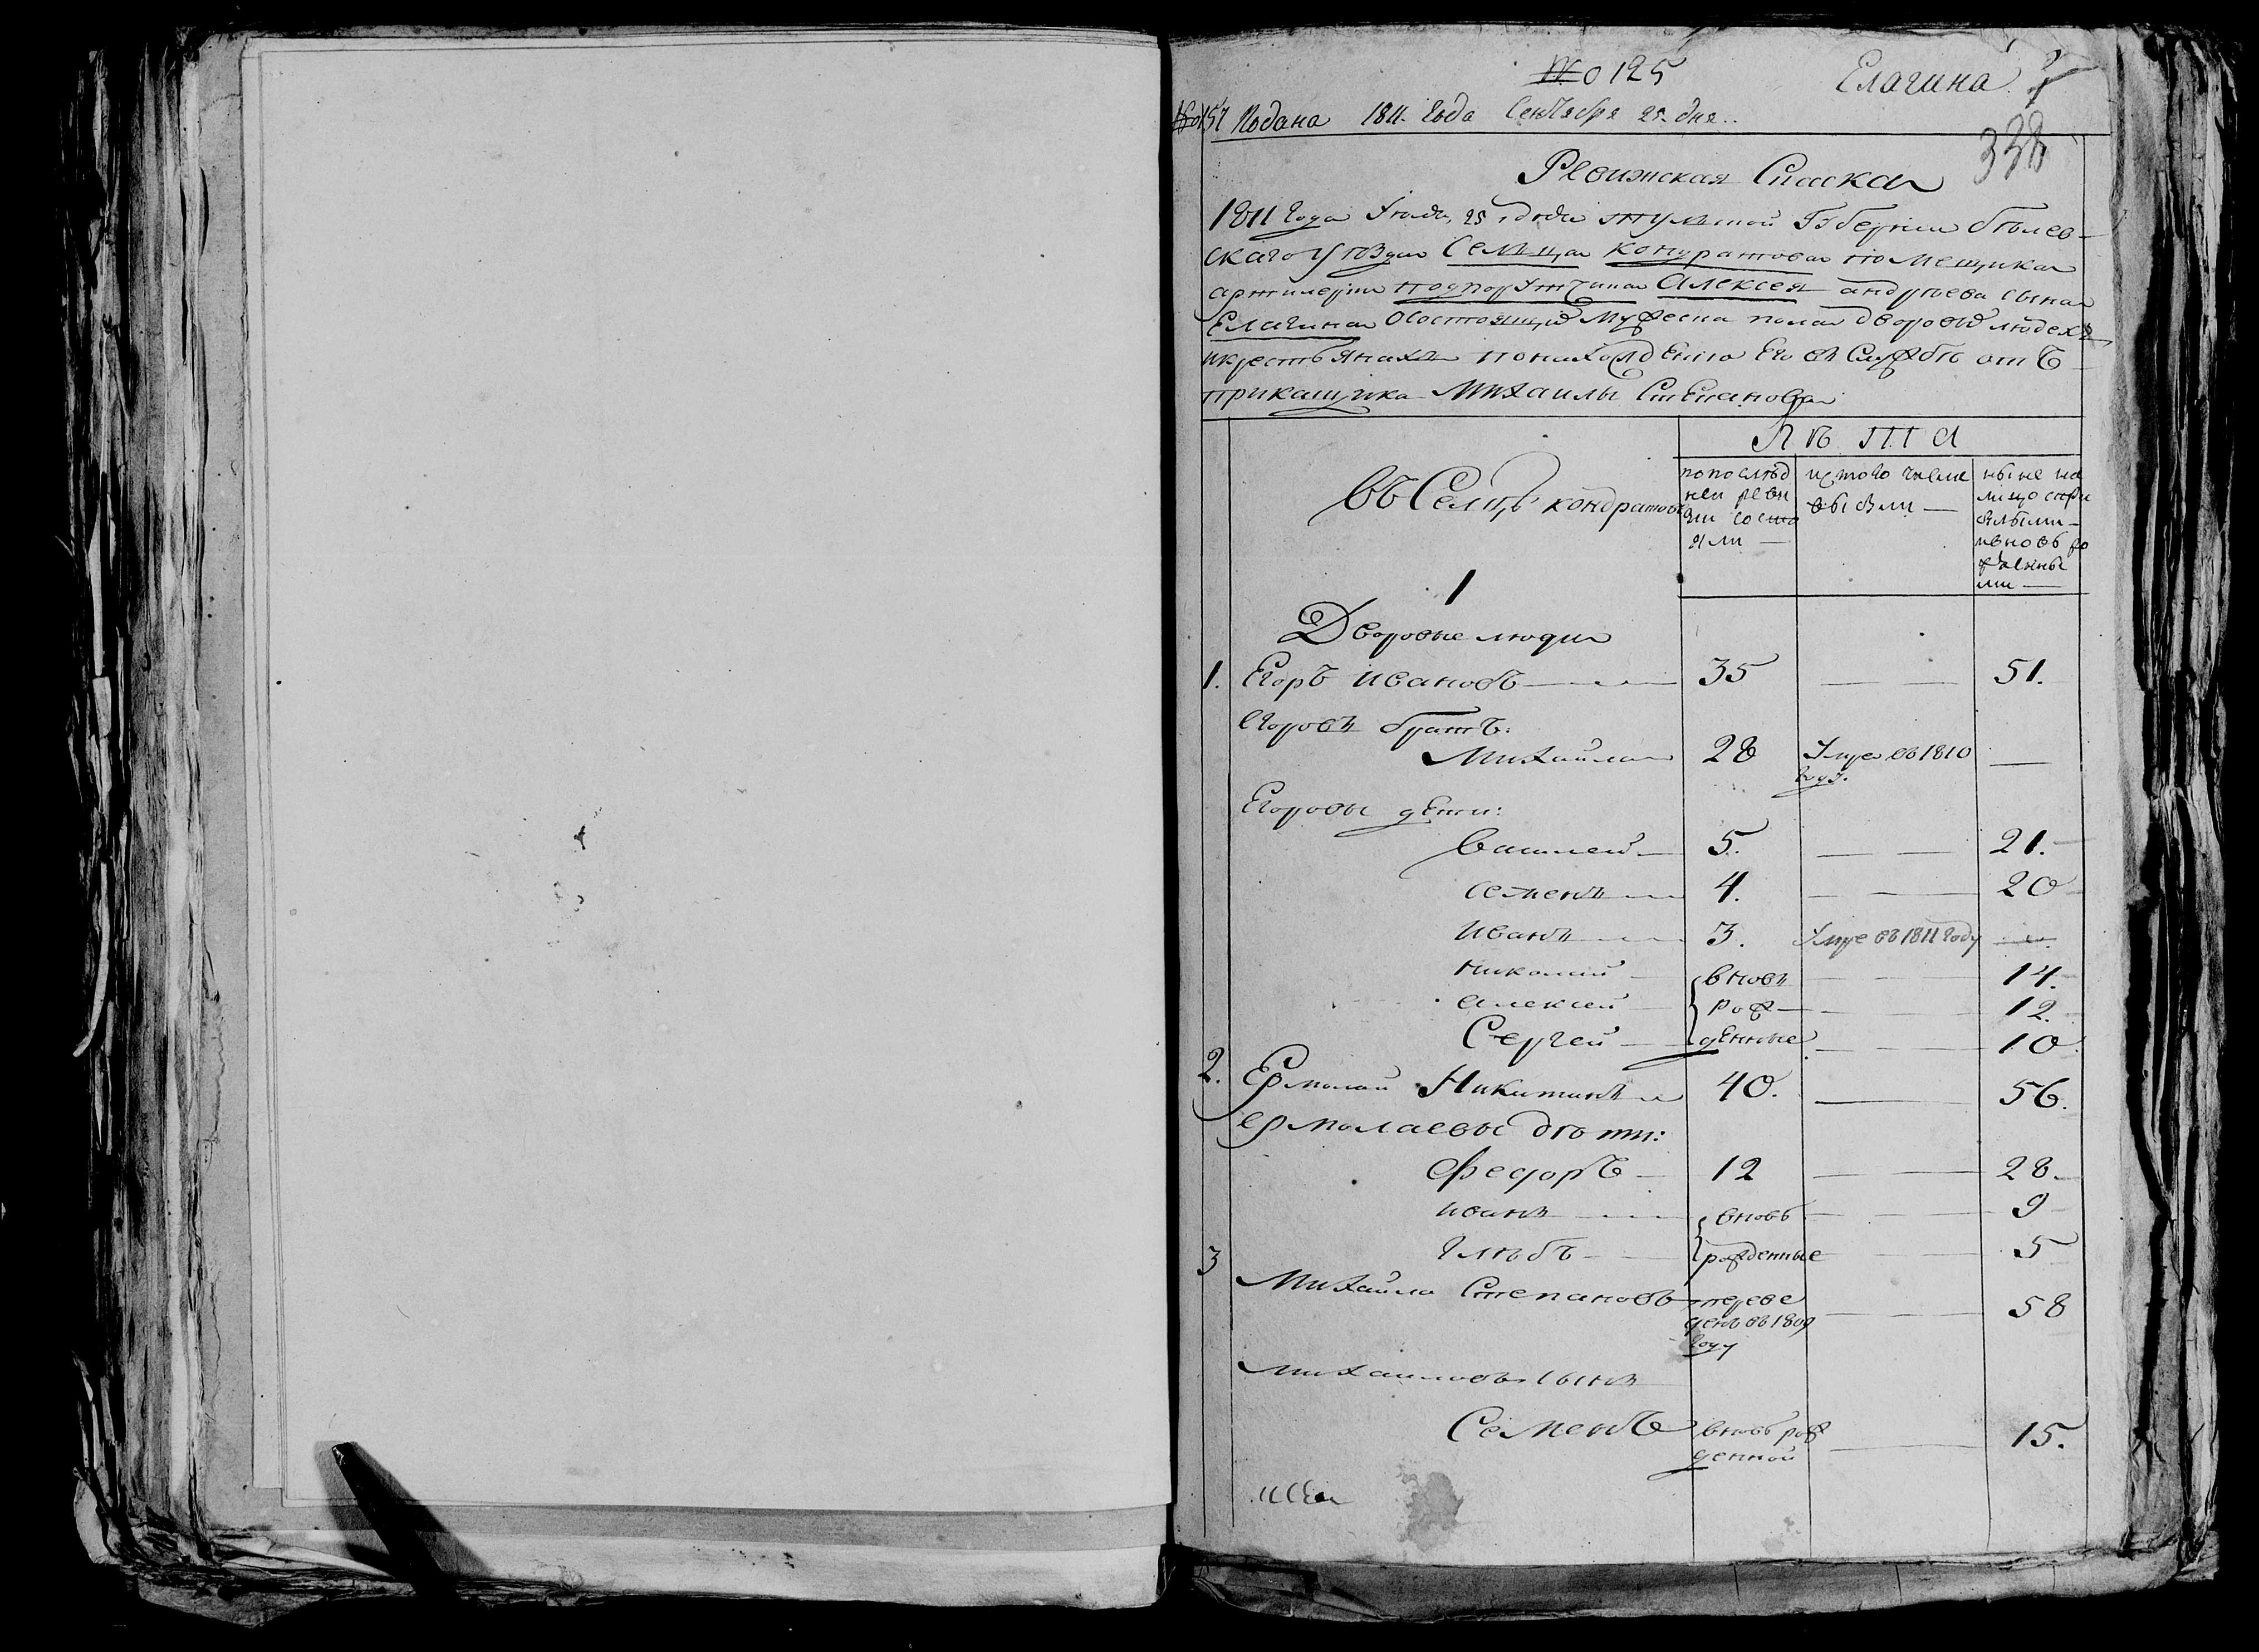 № 125
Елагина
№ 157 Подана 1811. года Сентября 25. дня..
338
Ревижская Скаска
1811 года Июля, 25, дня тульской Губернии бѣлев-
скаго уѣзда Селца Кондратова помещика
артилерии подпорутчика Алексея андрѣева сына
Елагина О состоящих мужеска пола дворовых людехъ
и крестьянахъ по нахождению Его въ службѣ отъ
прикащика Михаилы Степанова
Лѣта
въ Селцѣ кондратове
по послѣд
ней реви
зии состо
яли
ис того числа
выбыли
ныне на
лицо с при
былыми
и вновь ро
жденны
ми
1
Дворовые люди
1. Егоръ Ивановъ 35 — — 51.
Егоровъ братъ:
Михайла 28 Умре въ 1810 —
году.
Егоровы дети:
Василей 5. — — 21.
семенъ 4. — — 20
Иванъ 3. Умре въ 1811 году —
Николай вновъ — — 14.
алексей рож — — 12.
Сергей денные — — 10
2. Ермолай Никитинъ 40. — 56.
ермолаевы дѣти:
Федоръ 12 — 28.
иванъ вновь — 9
глѣбъ рожденные — 5
3
Михайла Степановъ переве — 58
денъ въ 1809
году
михаиловъ сынъ
Семенъ вновь рож — 15.
денной